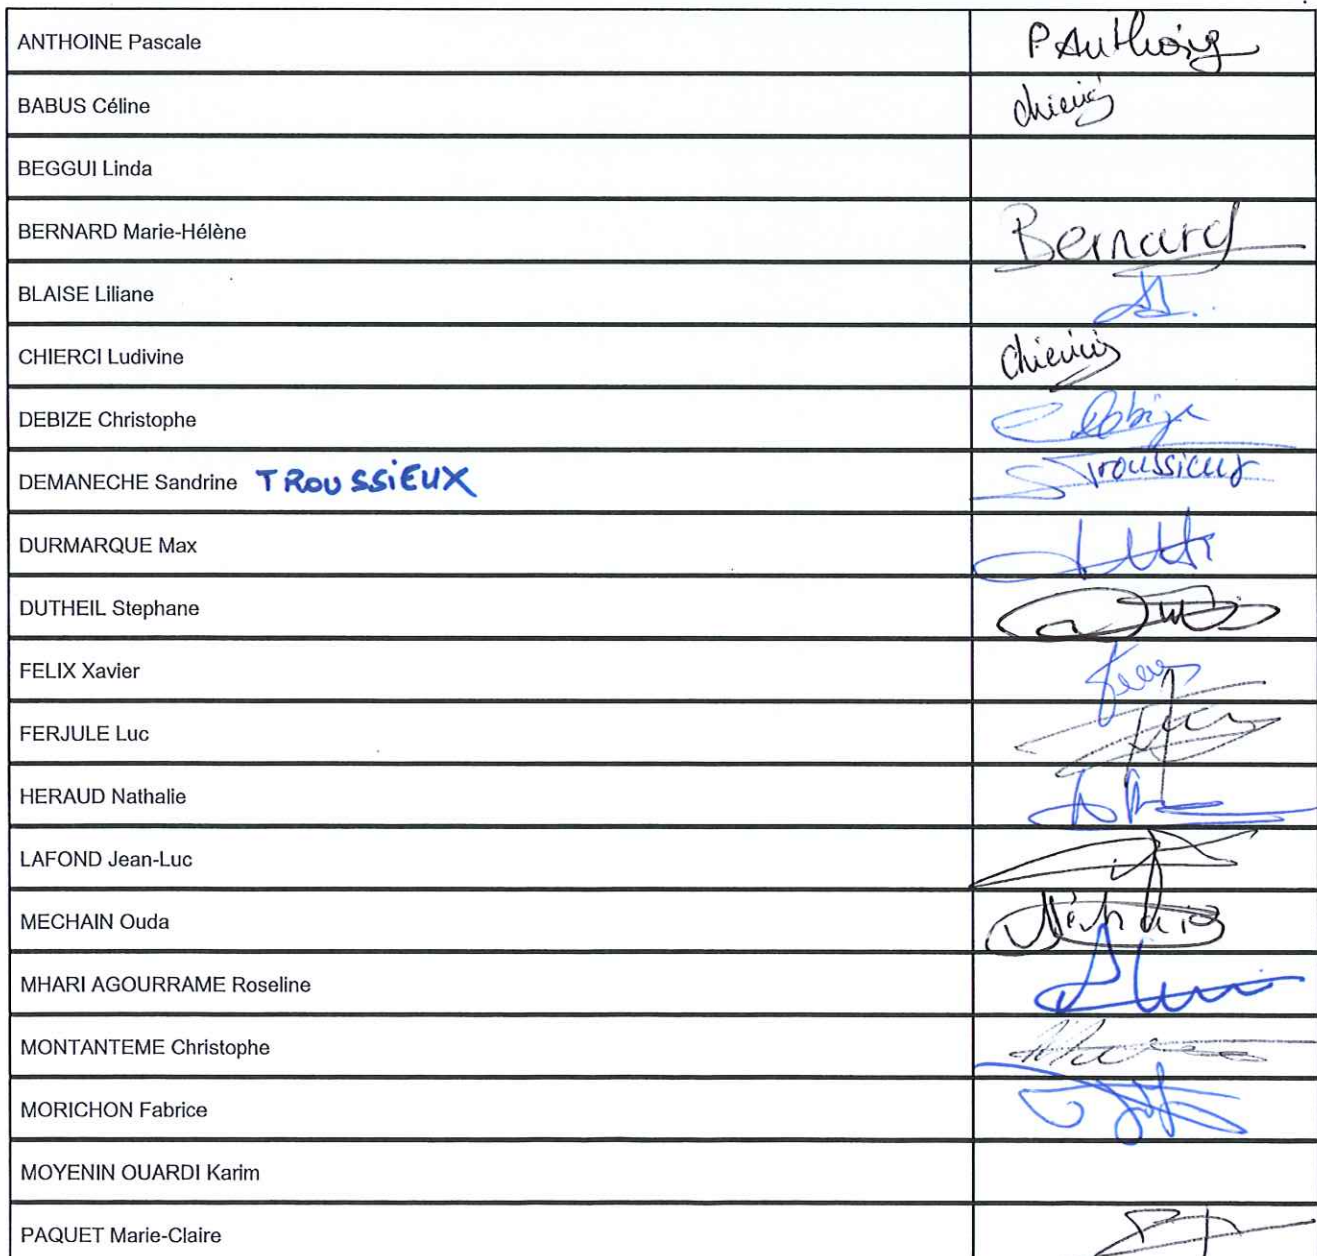 ANTHOINE Pascale P Anthoine
BABUS Céline
BEGGUI Linda
BERNARD Marie-Hélène Bernard
BLAISE Liliane
CHIERCI Ludivine
DEBIZE Christophe
DEMANECHE Sandrine TROUSSIEUX Troussieux
DURMARQUE Max
DUTHEIL Stephane
FELIX Xavier
FERJULE Luc
HERAUD Nathalie
LAFOND Jean-Luc
MECHAIN Ouda
MHARI AGOURRAME Roseline
MONTANTEME Christophe
MORICHON Fabrice
MOYENIN OUARDI Karim
PAQUET Marie-Claire